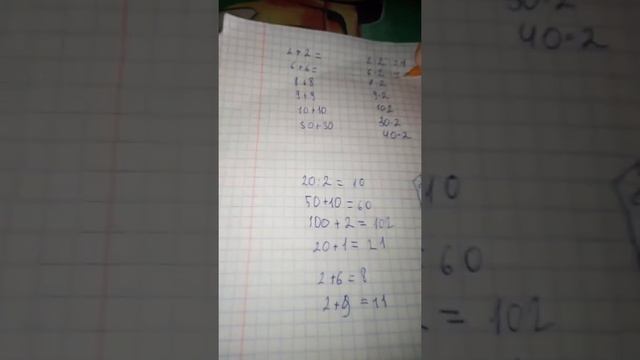 2+2=
6+6=
8+8
9+9
10+10
30+30
2·2
6·2
8·2
9·2
30·2
40·2
20:2=10
50+10=60
100+2=102
20+1=21
2+6=8
2+9=11